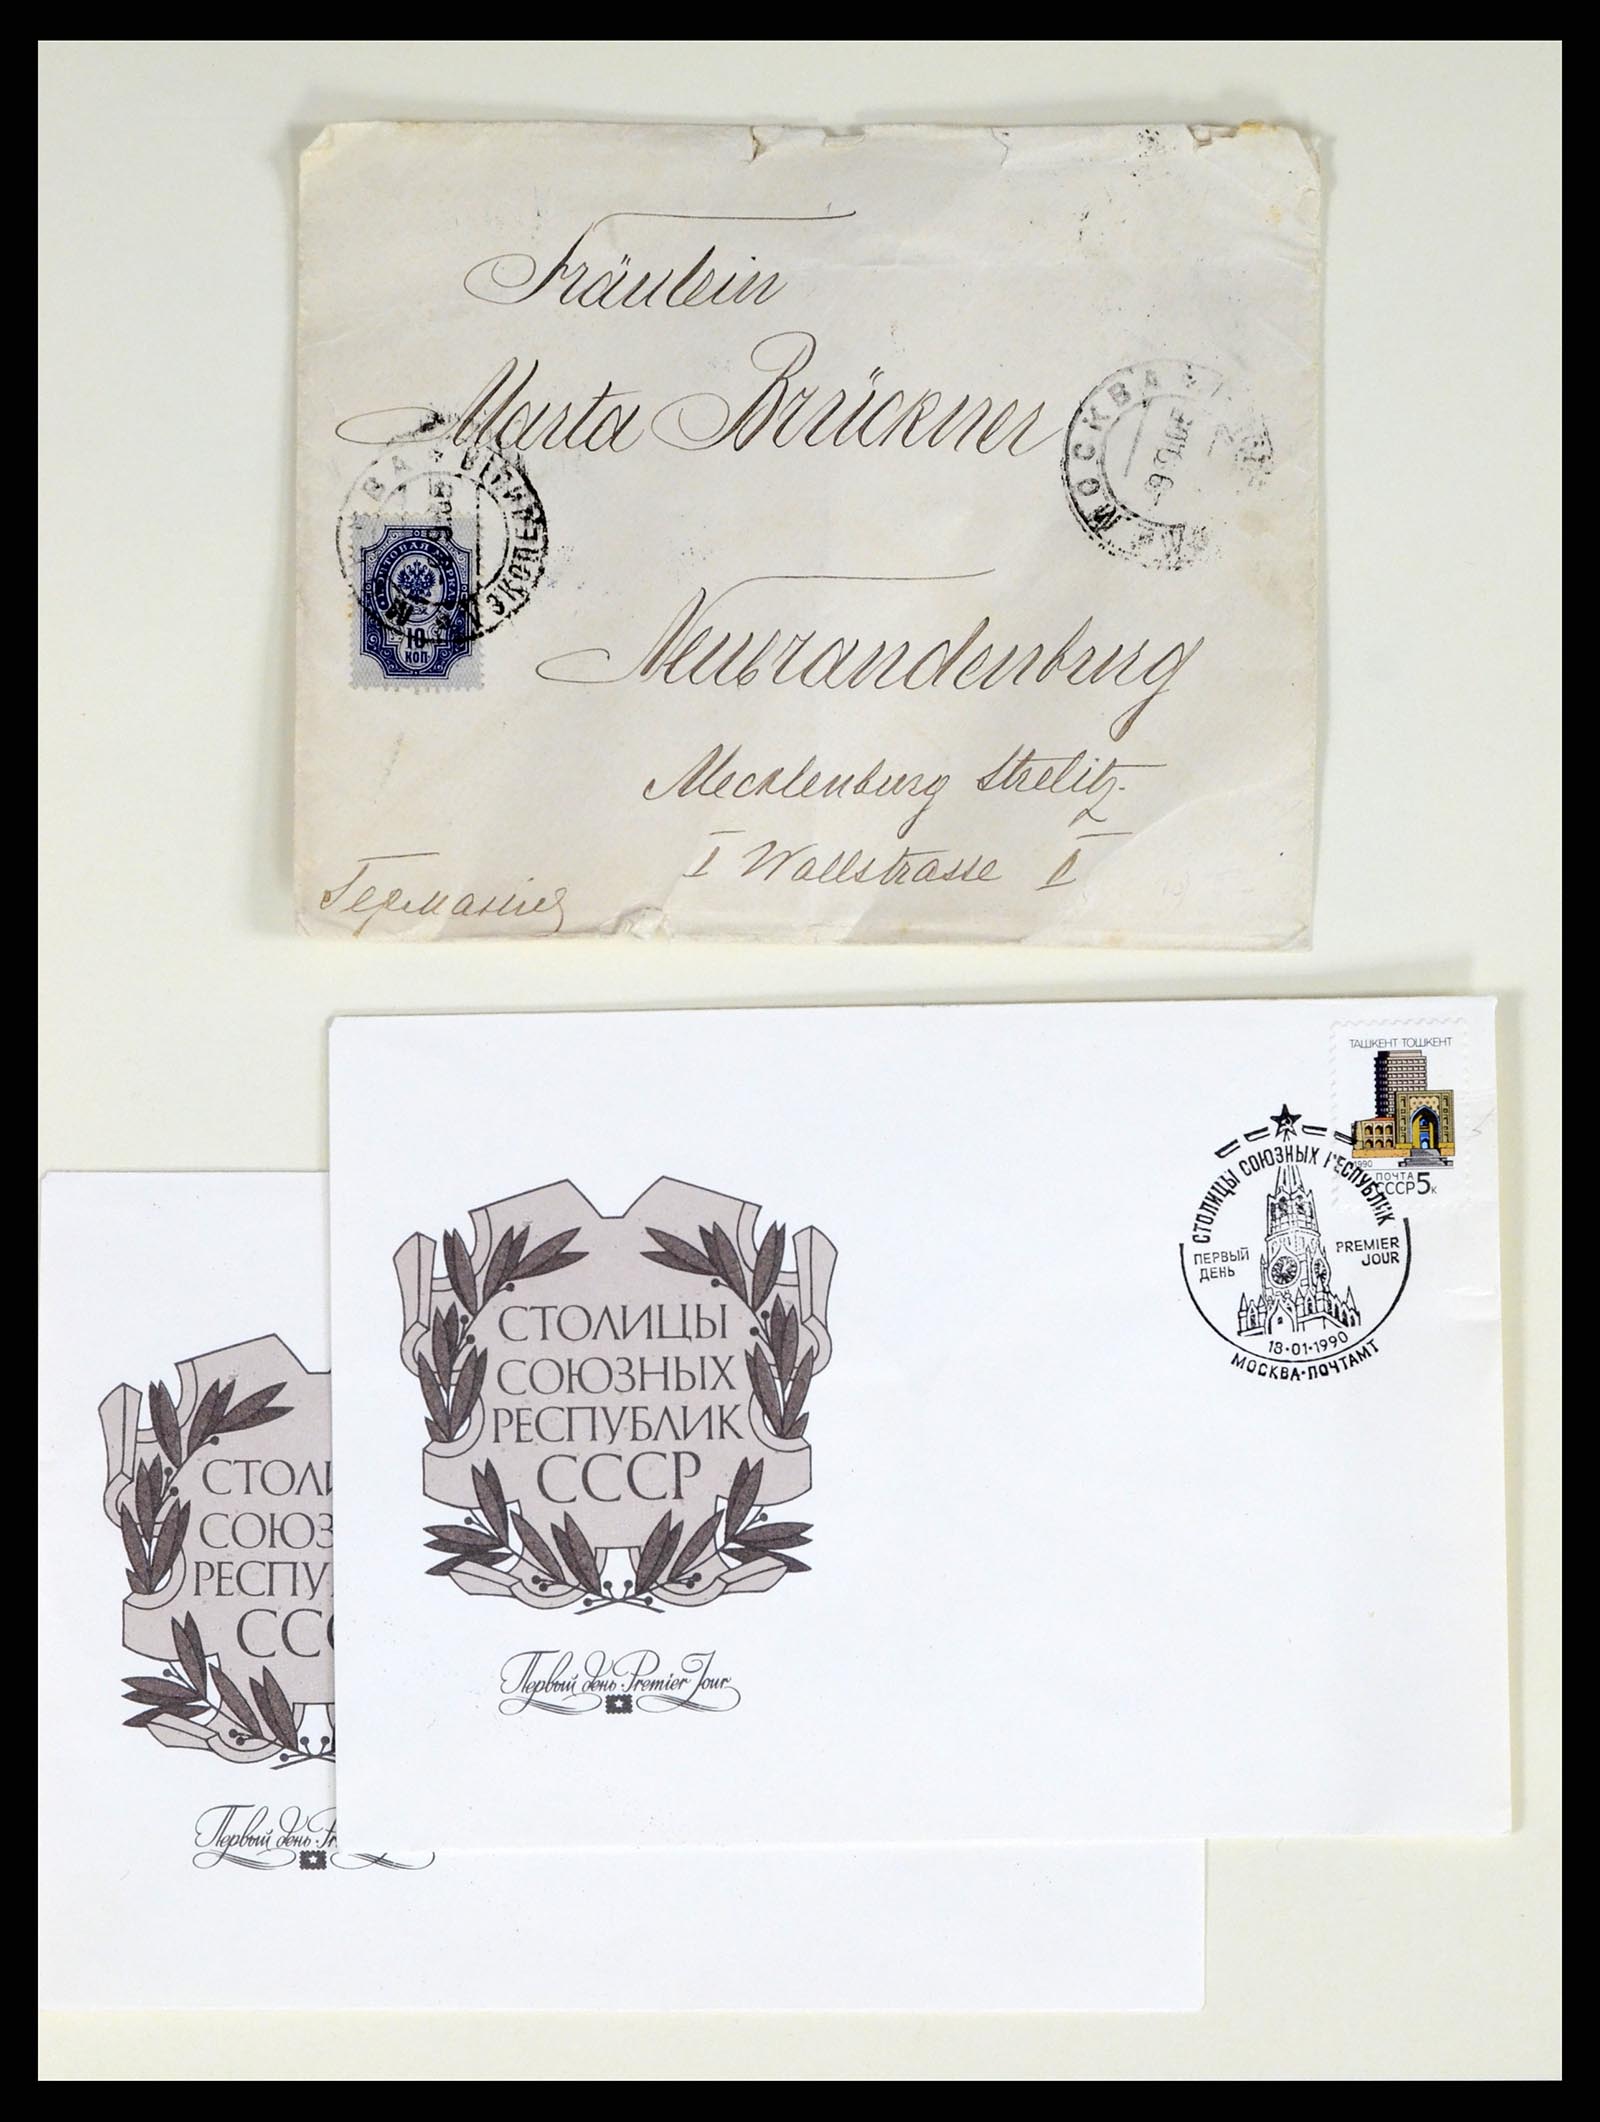 Fräulein
Marta Brückner
Neubrandenburg
Mecklenburg Strelitz.
I Wallstrasse II
Германія
МОСКВА
10
КОП
ТАШКЕНТ ТОШКЕНТ
1990
ПОЧТА
СССР 5к
СТОЛИЦЫ СОЮЗНЫХ РЕСПУБЛИК
ПЕРВЫЙ ДЕНЬ
PREMIER JOUR
18·01·1990
МОСКВА·ПОЧТАМТ
СТОЛИЦЫ
СОЮЗНЫХ
РЕСПУБЛИК
СССР
Первый день·Premier Jour
СТОЛИ
СОЮЗ
РЕСПУ
ССС
Первый день·Pr